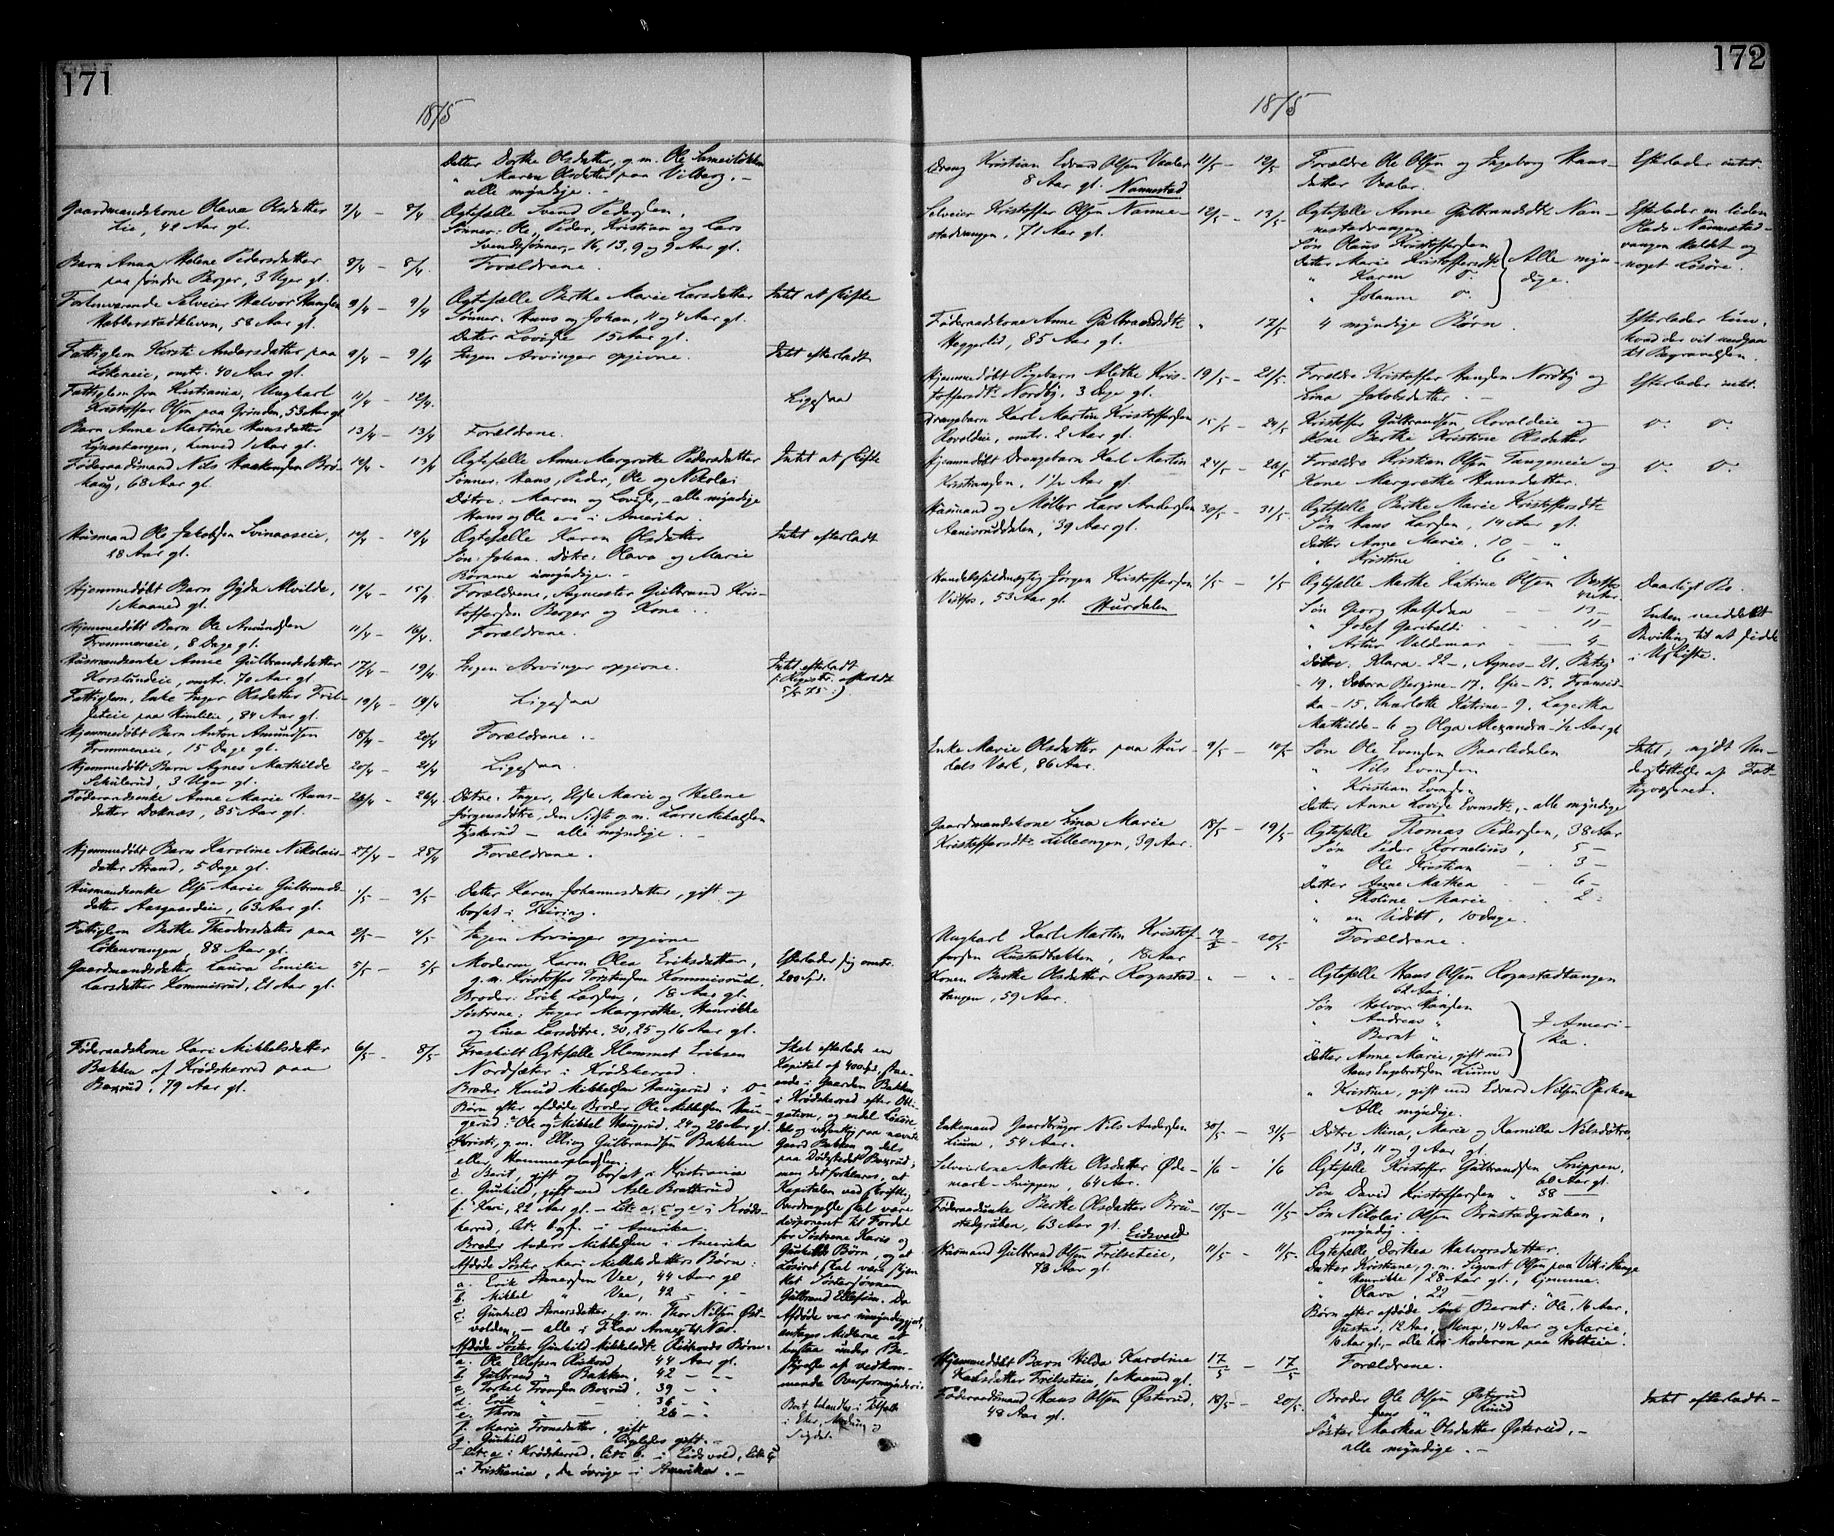 171
1875
Datter Dorthe Olsdatter, g. m. Ole
" Maren Olsdatter paa Vilberg. –
alle myndige. –
Gaardmandskone Olava Olsdatter
Lie, 42 Aar gl.
7/4 – 8/4
Ægtefælle Svend Pedersen,
Sønner: Ole, Peder, Kristian og Lars
Svendssønner, – 16, 13, 9 og 9 Aar gl.
Barn Anna Helene Pedersdatter
paa søndre Berger, 3 Uger gl.
8/4 – 8/4.
Forældrene.
Forhenværende Selveier Halvor Hansen
Habberstadkleven, 58 Aar gl.
9/4 – 9/4
Ægtefælle Berthe Marie Larsdatter
Sønner: Hans og Johan, 11 og 4 Aar gl.
Datter Lovise 15 Aar gl.
Intet at skifte
Fattiglem Kirsti Andersdatter paa
Løkeneie, omtr. 40 Aar gl.
9/4 – 9/4
Ingen Arvinger opgivne.
Intet efterladt
Fattiglem fra Kristiania, Ungkarl
Kristoffer Olsen paa Grinden, 53 Aar gl
11/4 – 12/4.
Ligesaa
Barn Anne Martine Hansdatter
henved 1 Aar gl.
13/4 – 13/4
Forældrene.
Føderaadsmand Nils Haakensen Brø-
haug, 68 Aar gl.
12/4 – 13/4
Ægtefælle Anne Margrethe Pedersdatter
Sønner: Hans, Peder, Ole og Nikolai
Døtre: Maren og Lovise, – alle myndige
Hans og Ole ere i Amerika.
Intet at skifte
Huusmand Ole Jakobsen Svinaaseie,
18 Aar gl.
14/4 – 14/4
Ægtefælle Karen Olsdatter
Søn: Johan. Døtre: Olava og Marie
Børnene umyndige. –
Intet efterladt
Hjemmedøbt Barn Gyda Alvilde,
1 Maaned gl.
14/4 – 15/4
Forældrene, Sagmester Gulbrand Kris-
toffersen Berger og Kone.
Hjemmedøbt Barn Ole Amundsen
Trommeneie, 8 Dage gl.
11/4 – 16/4.
Forældrene.
Huusmandsenke Anne Gulbrandsdatter
Korslundeie, omtr. 70 Aar gl
17/4 – 19/4
Ingen Arvinger opgivne.
Intet efterladt
5/5 75.)
Fattiglem, Enke Inger Olsdatter Fril-
seteie paa Himlelie, 84 Aar gl.
19/4 – 19/4
Ligesaa
Hjemmedøbt Barn Anton Amundsen
Trommeneie, 15 Dage gl.
18/4 – 20/4
Forældrene. –
Hjemmedøbt Barn Agnes Mathilde
Schulerud, 3 Uger gl.
20/4 – 21/4
Ligesaa.
Føderaadsenke Anne Marie Hans-
datter Doknæs, 85 Aar gl.
26/4 – 26/4
Døtre: Inger, Else Marie og Helene
Jørgensdøtre, den Sidste g. m. Lars Mikalsen
– alle myndige. –
Hjemmedøbt Barn Karoline Nikolais-
datter Strand, 5 Dage gl.
27/4 – 28/4
Forældrene.
Huusmandsenke Else Marie Gulbrands-
datter Aasgaardeie, 63 Aar gl.
1/5 – 3/5
Datter Karen Johannesdatter, gift og
bosat i Feiring.
Fattiglem Berthe Theodorsdatter paa
Løkenvangen, 88 Aar gl.
2/5 – 4/5
Ingen Arvinger opgivne
Gaardmandsdatter Laura Emilie
Larsdatter Kommisrud, 21 Aar gl.
5/5 – 5/5
Moderen Karen Olea Eriksdatter,
g. m. Kristoffer Torstensen Kommisrud.
Broder: Erik Larssen, 18 Aar gl.
Søstrene: Inger Margrethe, Henrikke
og Lina Larsdøtre, 30, 25 og 16 Aar gl.
Efterlader sig omtr.
200 Spd.
Føderaadskone Kari Mikkelsdatter
Bakken af Krødsherred paa
Børud, 79 Aar gl.
6/5 – 8/5
Fraskilt Ægtefælle Klemmet Eriksen
Nordsæter i Krødsherred.
Broder Knud Mikkelsen Haugerud i do
Børn efter afdøde Broder Ole Mikkelsen Hau-
gerud: Ole og Mikkel Haugerud, 24 og 26 Aar gl.
Kirsti, g. m. Elling Gulbrandsen Bakken
eller Hammerpladsen.
d. Berit, gift og bosat i Kristiania
e. Gunhild, gift med Asle Bratterud
f. Kari, 22 Aar gl. – Litr. a, c og e i Krøds-
herred, Litr. b og f. – i Amerika.
Broder Anders Mikkelsen i Amerika
Afdøde Søster Aari Mikkelsdatters Børn:
a. Erik Arnesen Vee, 44 Aar gl
b. Mikkel " Vee, 42 – –
c. Gunhild Arnesdatter, g. m. Thor Nilsen Øst-
volden, – alle i Flaa Annex til Næs.
Afdøde Søster Gunhild Mikkelsdt. Børn:
a. Ole Ellefsen 44 Aar gl.
b. Gulbrand " Bakken, 42 – –
c. Torkel Tronsen Børud, 39 – "
d. Erik " – 36 – "
e. Thron " – 26 – "
f. Marie Tronsdatter, gift
g. Gunhild – " – Ligeledes gift. –
Litr. a i Krødsherred, Litr. b. – i Eidsvold, Litr. g
i Kristiania, de øvrige – i Amerika. –
Skal efterlade en
Kapital af 400 Spd., staa-
ende i Gaarden Bakken
i Krødsherred efter Obli-
gation, og endel Løsøre
dels og væsentlig paa nævnte
Gaard Bakken og dels
paa Dødsstedet Børud;
men det forklares, at
Kapitalen ved skriftlig
Overdragelse skal være
disponent til Fordel
for Søstrene Karis og
Gunhilds Børn, og at
Løsøret skal være skjæn-
ket Søstersønnen
Gulbrand Ellefsen. Da
Afdøde var umyndiggjort,
antages Midlerne at
bestaa under Be-
styrelse af vedkom-
mende Overformynderi.
172
1875
Dreng Kristian Edvard Olsen Vaaler
8 Aar gl. Nannestad
11/5 – 12/5
Forældre Ole Olsen og Ingeborg Hans-
datter Vaaler.
Efterlader intet.
Selveier Kristoffer Olsen Nanne-
stadvangen, 71 Aar gl.
12/5 – 13/5
Ægtefælle Anne Gulbrandsdt. Nan-
nestadvangen.
Søn Olaus Kristoffersen
Datter Marie Kristoffersdt.
" Karen do.
" Johanne do.
Alle myn-
dige.
Efterlader en liden
Plads Nannestad-
vangen kaldet og
noget Løsøre.
Føderaadskone Anne Gulbrandsdt.
Heggerlid, 85 Aar gl.
" 17/5
4 myndige Børn.
Efterlader kun,
hvad der vil medgaa
til Begravelsen.
Hjemmedøbt Pigebarn Alethe Kris-
toffersdt. Nordby, 3 Dage gl.
19/5 – 21/5.
Forældre Kristoffer Hansen Nordby og
Lina Jakobsdatter. –
Efterlader intet.
Drengebarn Karl Martin Kristoffersen
omtr. 2 Aar gl.
15/5 – 24/5
Kristoffer Gulbrandsen og
Kone Berthe Kristine Olsdatter
do. do.
Hjemmedøbt Drengebarn Karl Martin
Kristiansen, 1/2 Aar gl.
24/5 – 26/5
Forældre Kristian Olsen Tangeneie og
Kone Margrethe Hansdatter.
do. do.
Huusmand og Møller Lars Andersen
39 Aar gl.
30/5 – 31/5
Ægtefælle Berthe Marie Kristoffersdt.
Søn Hans Larssen, 14 Aar gl.
Datter Anne Marie, 10 – "
" Kristine 6 – "
Handelsfuldmægtig Jørgen Kristoffersen
53 Aar gl. Hurdalen
1/5 – 1/5
Ægtefælle Marthe Katrine Olsen
Søn Georg Halfdan – 13 –
" Josef Garibaldi – 11 –
" Artur Valdemar – 4 –
Døtre. Klara – 22 –, Agnes – 21. Betsy
– 19. Debora Bergine – 17. Efie – 15. Fransis-
ka – 15. Charlotte Katrine – 9. Lagertha
Mathilde – 6 og Olga Alexandra – 1/2 Aar gl
Daarligt Bo.
Enken meddelt
Bevilling til at sidde
i Uskifte.
Enke Marie Olsdatter paa Hur-
dals Værk, 86 Aar.
9/5 – 10/5
Søn Ole Evensen Baarlidalen
" Nils Evensen
" Kristian Evensen
Datter Anne Lovise Evensdt. – alle myndige
Intet; nydt Un-
derstøttelse af Fat-
tigvæsenet.
Gaardmandskone Lina Marie
Kristoffersdt. Lilleengen, 39 Aar.
18/5 – 19/5
Ægtefælle Thomas Pedersen, 38 Aar
Søn Peder Kornelius, 5 –
" Ole Kristian – 3 –
Datter Anne Mathea – 6 –
" Tholine Marie 2 –
" en Udøbt, 10 Dage.
Ungkarl Karl Martin Kristof-
fersen Rustadbakken, 18 Aar
19/5 – 20/5
Forældrene.
Konen Berthe Olsdatter Rognstad-
tangen, 59 Aar.
" – "
Ægtefælle Hans Olsen Rognstadtangen
62 Aar
Søn Halvor Hansen
" Andreas "
" Bernt "
Datter Anne Marie, gift med
Hans Engebretsen Lium
I Ameri-
ka.
" Kristine, gift med Edvard Nilsen
Alle myndige.
Enkemand Gaardbruger Nils Andersen
Lium, 54 Aar.
30/5 – 31/5
Døtre Mina, Marie og Kamilla Nilsdøtre,
13, 11 og 9 Aar gl.
Selveierkone Marthe Olsdatter Øde-
mark – Snippen, 64 Aar.
1/6 – 1/6
Ægtefælle Kristoffer Gulbrandsen Snippen,
62 Aar gl.
Søn David Kristoffersen " 38 –
Føderaadsenke Berthe Olsdatter Bru-
stadgruben, 63 Aar gl.
Eidsvold
10/5 – 11/5
Søn Nikolai Olsen Brustadgruben,
myndig.
Husmand Gulbrand Olsen Frilseteie,
78 Aar gl.
11/5 – 11/5
Ægtefælle Dorthea Halvorsdatter.
Datter Kristiane, g. m. Sigvart Olsen paa Vik i Stange
" Henrikke, 28 Aar gl.,
" Olava, 22 –
Børn efter afdøde Søn Bernt: Ole, 16 Aar,
Gustav, 12 Aar, Mina, 14 Aar og Marie,
10 Aar gl., – alle hos Moderen paa Holteie.
Hjemmedøbt Barn Hilda Karoline
Karlsdatter Frilseteie, 1 Maaned gl.
17/5 – 17/5
Forældrene.
Føderaadsmand Hans Olsen Østerud,
48 Aar gl.
18/5 – 20/5.
Broder Ole Olsen Østerud
" Jens " Ruud
Søster Marthea Olsdatter Østerud, –
alle myndige. –
Intet efterladt. –